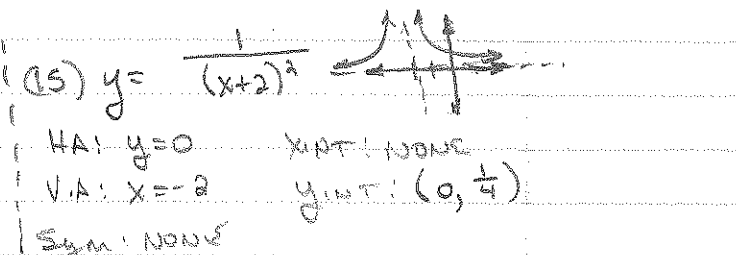 (15) y = 1/(x+2)²
HA: y=0 XINT: NONE
V.A: x=-2 y.INT: (0, 1/4)
Sym: NONE